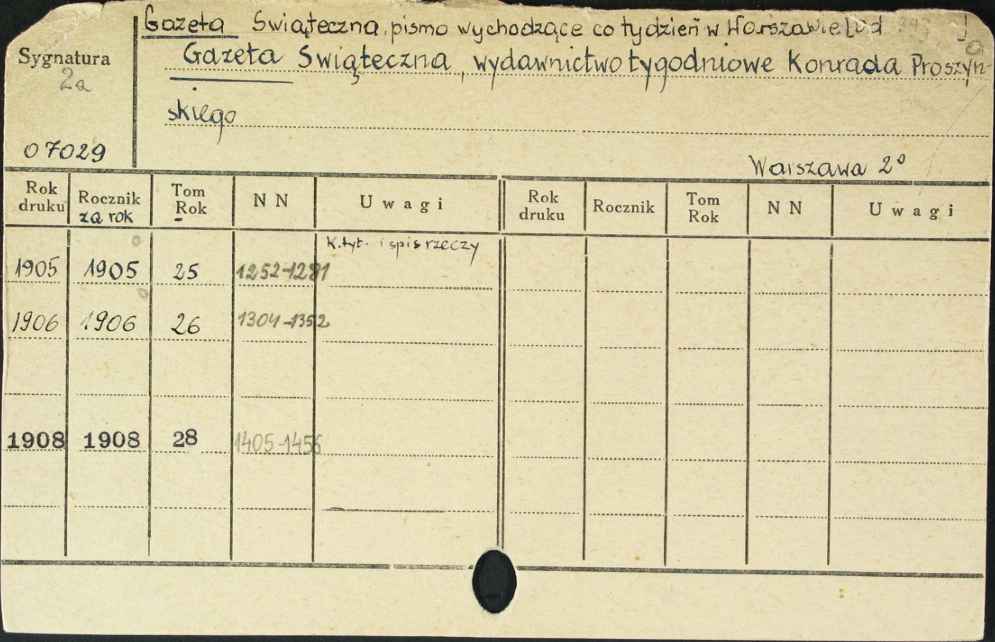 Gazeta Świąteczna, pismo wychodzące co tydzień w Warszawie
Sygnatura
2a
Gazeta Świąteczna, wydawnictwo tygodniowe Konrada Proszyń-
skiego
07029
Warszawa 2°
Rok druku Rocznik za rok Tom Rok N N Uwagi Rok druku Rocznik Tom Rok N N Uwagi
K. tyt. i spis rzeczy
1905 1905 25 1252-1291
1906 1906 26 1304-1352
1908 1908 28 1405-1456